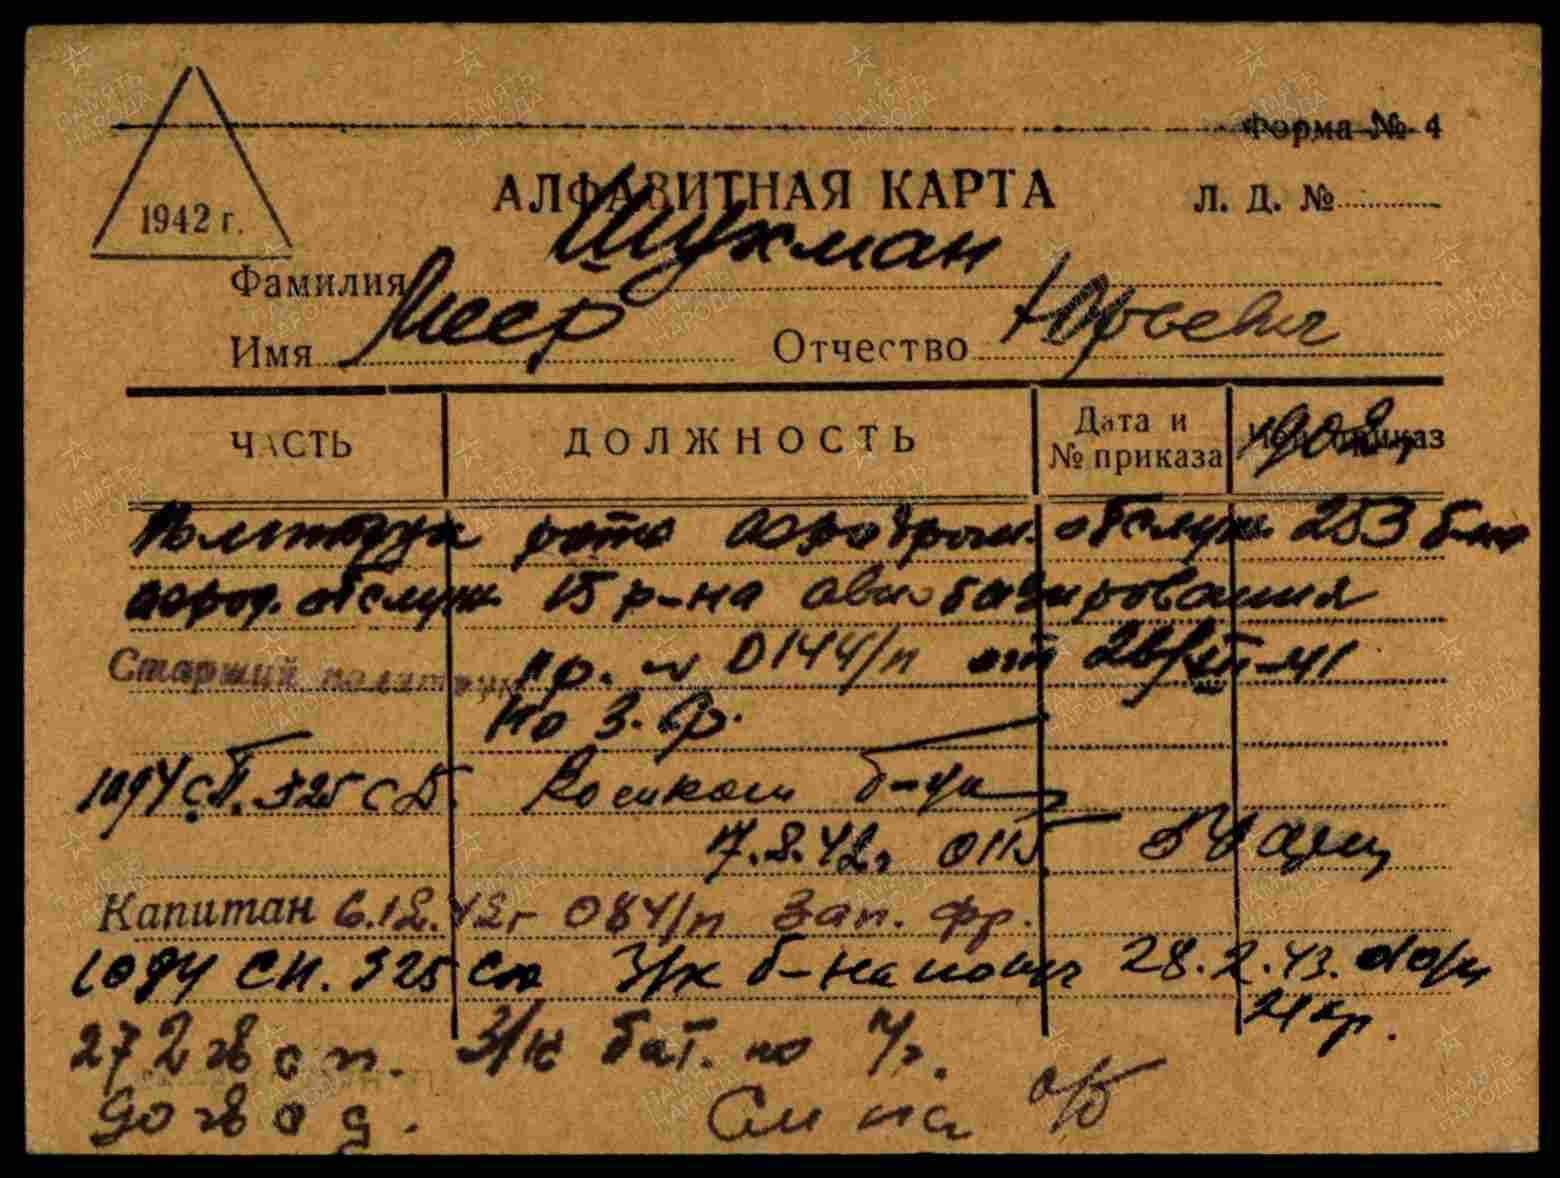 Форма № 4
1942 г.
АЛФАВИТНАЯ КАРТА
Л. Д. №
Фамилия Шухман
Имя Меер Отчество Юрьевич
ЧАСТЬ ДОЛЖНОСТЬ Дата и № приказа Чей приказ
1902
Политрук роты аэродром. обслуж. 253 б-на
аэрод. обслуж. 15 р-на авиабазирования
Старший политрук пр. № 0144/п от
по З. Ф.
1094 сп. 325 сд. Военком б-на
7.8.42г 0115
Капитан 6.12.42г 084/п Зап. фр.
1094 сп. 325 сд З/к б-на по п/ч 28.2.43.
272 гв с п. З/к бат. по п/ч.
90 гв с д. См на о/б
ПАМЯТЬ НАРОДА